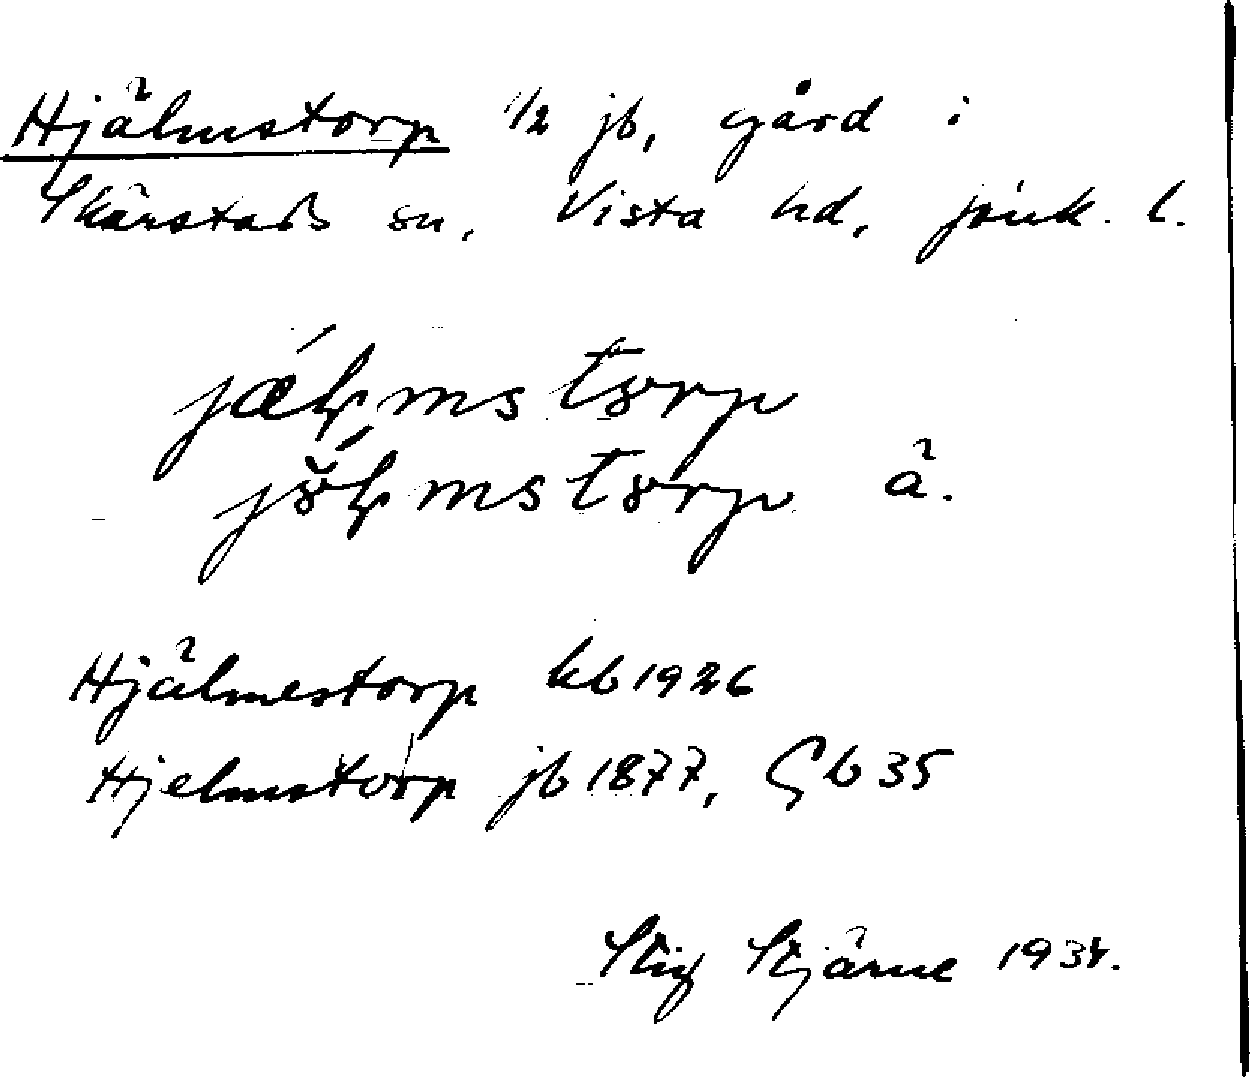 Hjälmstorp 1/2 jb, gård i
Skärstads sn, Vista hd, Jönk. l.
jǽlmstorp
jö́lmstorp ä.
Hjälmestorp kb 1926
Hjelmstorp jb 1877, Gb 35
Stig Stjärne 1934.